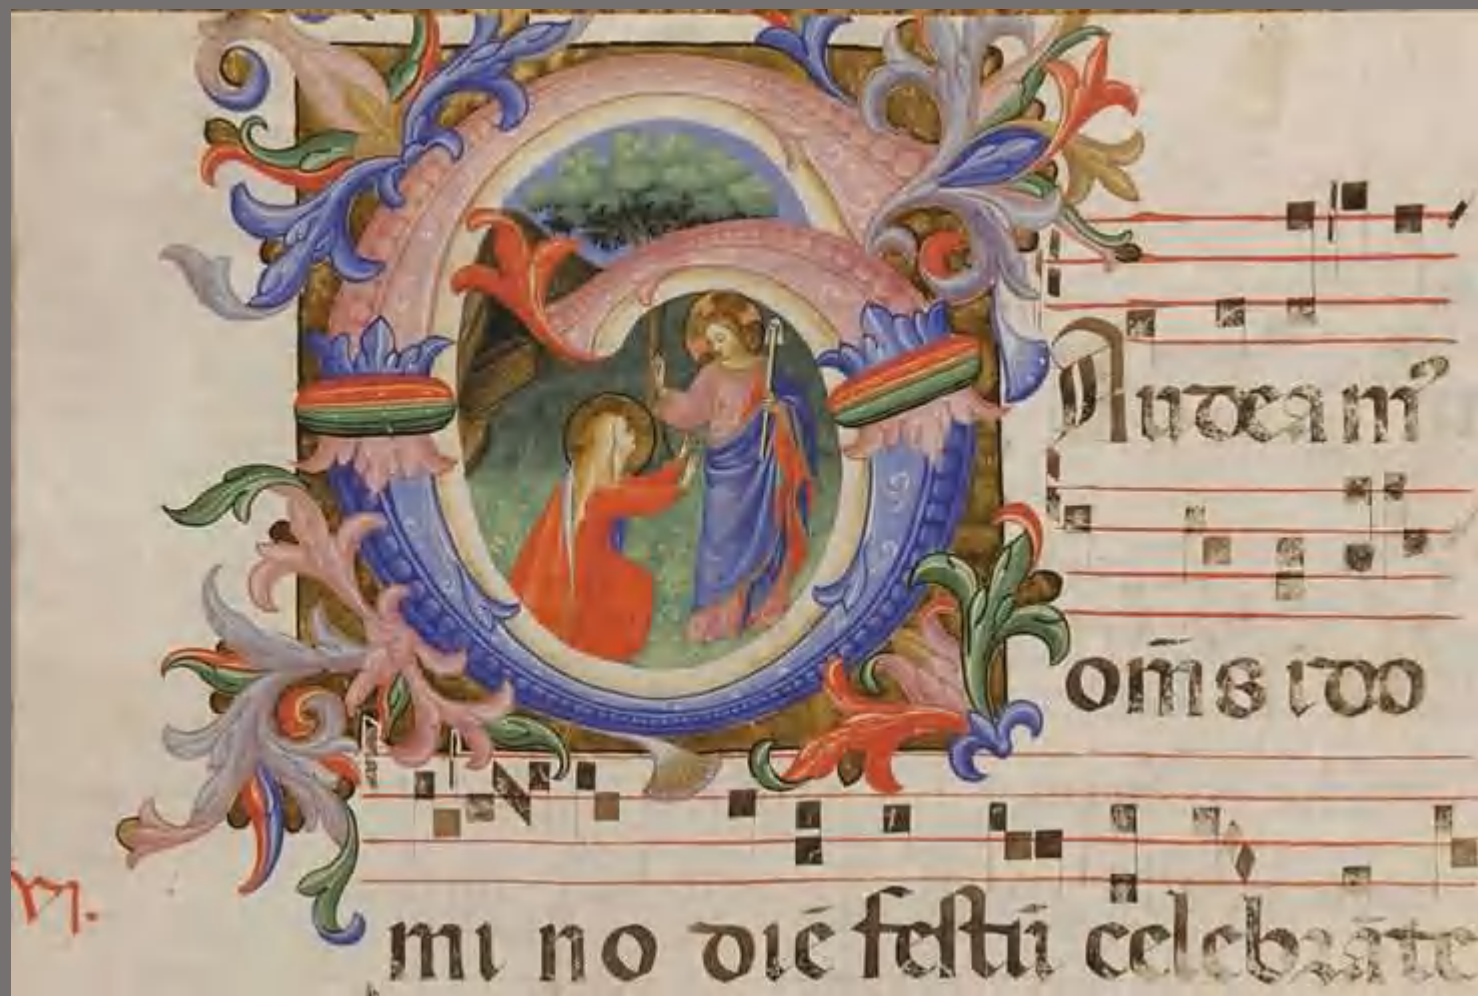 GAudeamꝰ
om̄s i do
mi no diē festū celebrāte
VI.